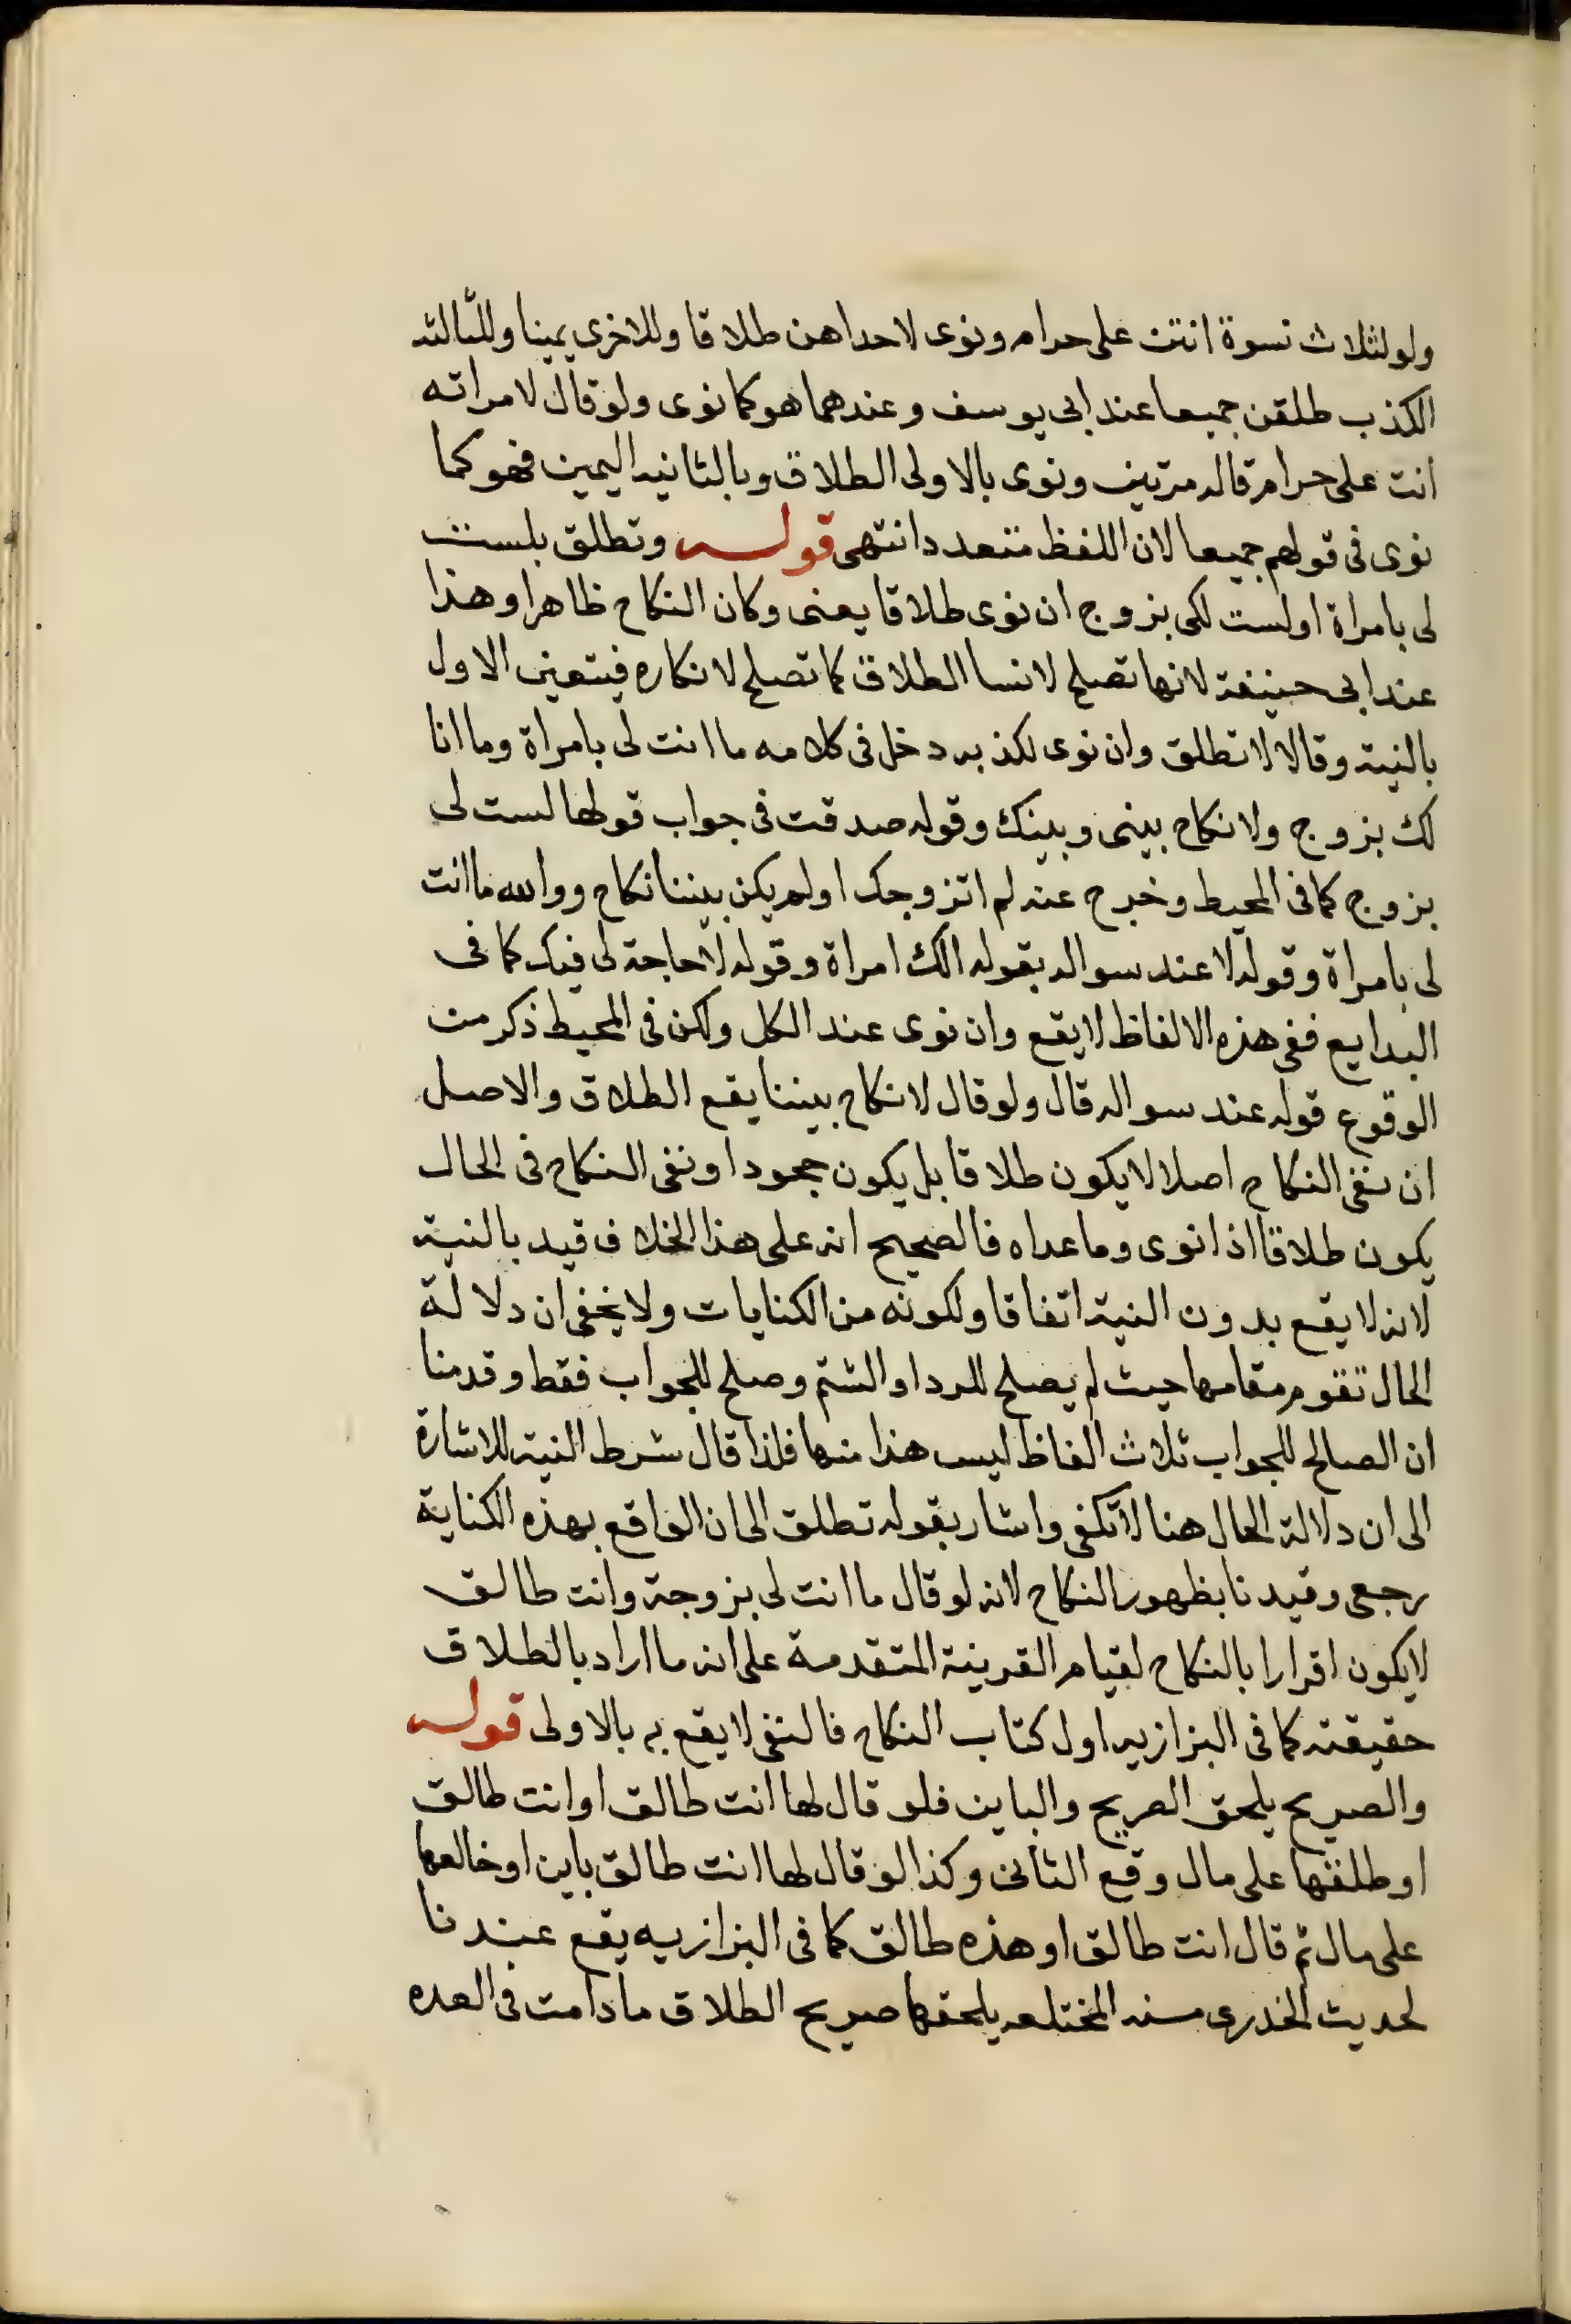 ولو لثلاث نسوة انتن على حرام ونوى لاحداهن طلاقا وللاخرى يمينا وللثالثه
الكذب طلقن جميعا عند ابى يوسف وعندهما هو كما نوى ولو قال لامراته
انت على حرام قاله مرتين ونوى بالاولى الطلاق وبالثانيه اليمين فهو كما
نوى فى قولهم جميعا لان اللفظ متعدد انتهى قوله وتطلق بلست
لى بامراة او لست لكى بزوج ان نوى طلاقا يعنى وكان النكاح ظاهرا وهذا
عند ابى حنيفة لانها تصلح لانسا الطلاق كما تصلح لانكاره فيتعين الاول
بالنية وقالا لا تطلق وان نوى لكذبه دخل فى كلامه ما انت لى بامراة وما انا
لك بزوج ولا نكاح بينى وبينك وقوله صدقت فى جواب قولها لست لى
بزوج كما فى المحيط وخرج عنه لم اتزوجك او لم يكن بيننا نكاح ووالله ما انت
لى بامراة وقوله لا عند سواله بقوله الك امراة وقوله لا حاجة لى فيك كما فى
البدايع ففى هذه الالفاظ لا يقع وان نوى عند الكل ولكن فى المحيط ذكر من
الوقوع قوله عند سواله قال ولو قال لا نكاح بيننا يقع الطلاق والاصل
ان نفى النكاح اصلا لا يكون طلاقا بل يكون جحودا ونفى النكاح فى الحال
يكون طلاقا اذا نوى وما عداه فالصحيح انه على هذا الخلاف قيد بالنية
لانه لا يقع بدون النية اتفاقا ولكونه من الكنايات ولا يخفى ان دلالة
الحال تقوم مقامها حيث لم يصلح للرد او الشتم وصلح للجواب فقط وقدمنا
ان الصالح للجواب ثلاث الفاظ ليس هذا منها فلذا قال شرط النية للاشارة
الى ان دلالة الحال هنا لا تكفى واشار بقوله تطلق الى ان الواقع بهذه الكناية
رجعى وقيدنا بظهور النكاح لانه لو قال ما انت لى بزوجة وانت طالق
لا يكون اقرارا بالنكاح لقيام القرينة المتقدمة على انه ما اراد بالطلاق
حقيقته كما فى البزازيه اول كتاب النكاح فالنفى لا يقع به بالاولى قوله
والصريح يلحق الصريح والباين فلو قال لها انت طالق او انت طالق
او طلقها على مال وقع الثانى وكذا لو قال لها انت طالق باين او خالعها
على مال ثم قال انت طالق او هذه طالق كما فى البزازيه يقع عندنا
لحديث الخدرى مسنه المختلعه يلحقها صريح الطلاق ما دامت فى العده